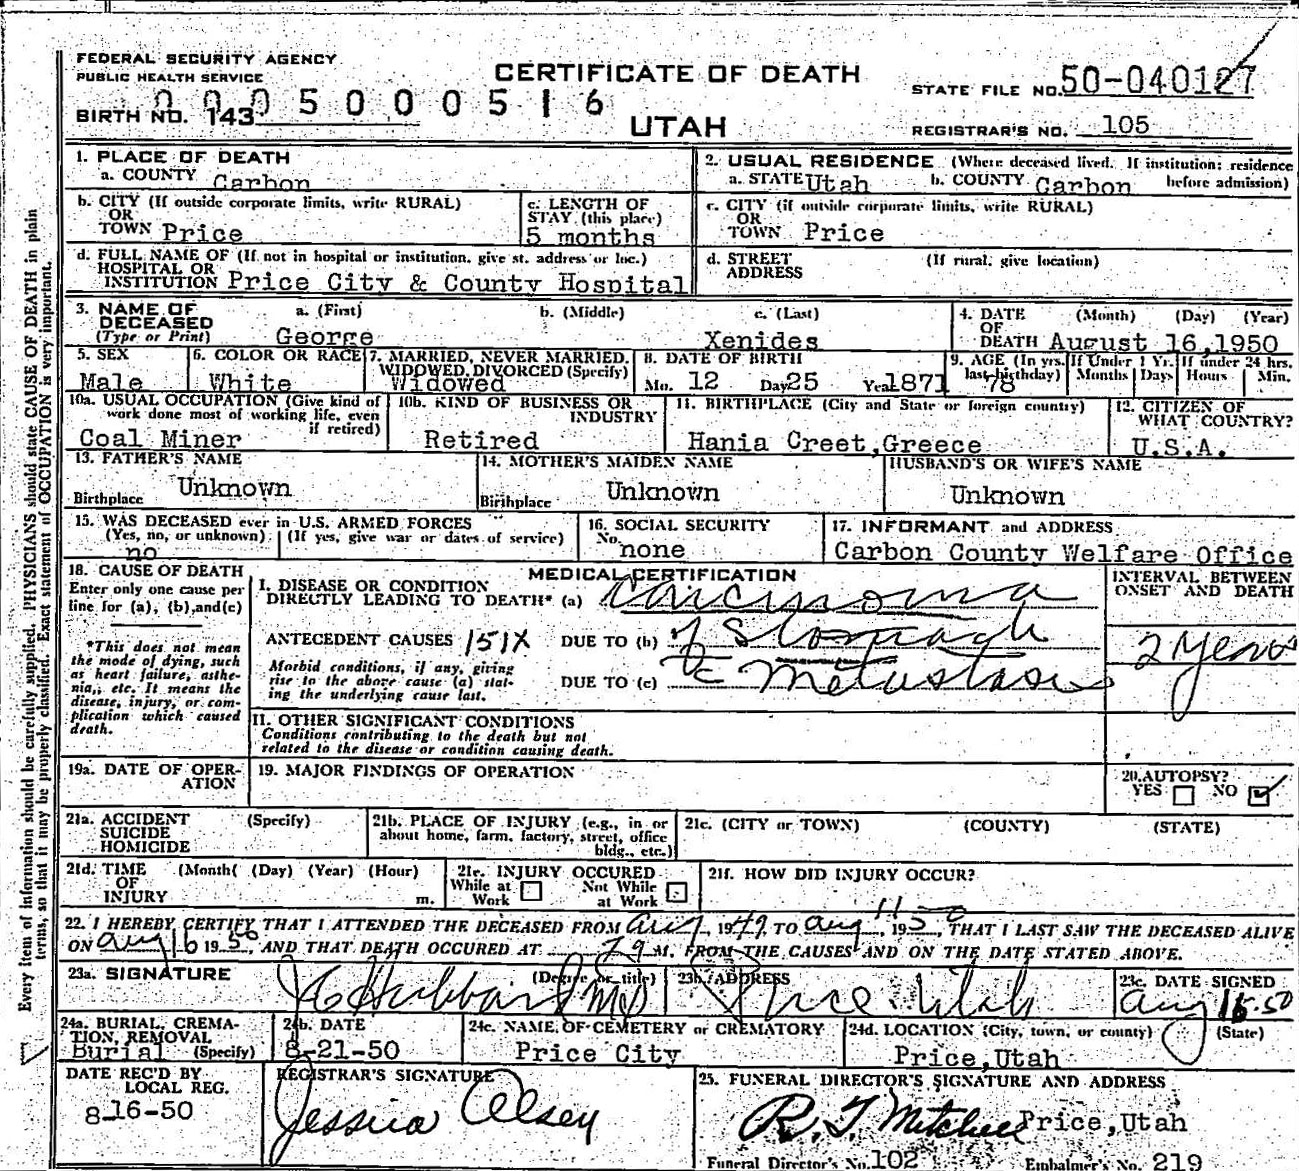 FEDERAL SECURITY AGENCY
PUBLIC HEALTH SERVICE
CERTIFICATE OF DEATH
STATE FILE NO. 50-040127
0005000516
BIRTH NO. 143
UTAH
REGISTRAR'S NO. 105
1. PLACE OF DEATH
a. COUNTY Carbon
2. USUAL RESIDENCE (Where deceased lived. If institution: residence before admission)
a. STATE Utah b. COUNTY Carbon
b. CITY (If outside corporate limits, write RURAL)
OR
TOWN Price
c. LENGTH OF
STAY (this place)
5 months
c. CITY (if outside corporate limits, write RURAL)
OR
TOWN Price
d. FULL NAME OF (If not in hospital or institution, give st. address or loc.)
HOSPITAL OR
INSTITUTION Price City & County Hospital
d. STREET
ADDRESS
(If rural, give location)
3. NAME OF
DECEASED
(Type or Print)
a. (First) b. (Middle) c. (Last)
George Xenides
4. DATE (Month) (Day) (Year)
OF
DEATH August 16,1950
5. SEX
Male
6. COLOR OR RACE
White
7. MARRIED, NEVER MARRIED,
WIDOWED, DIVORCED (Specify)
Widowed
8. DATE OF BIRTH
Mo. 12 Day 25 Year 1871
9. AGE (In yrs.
last birthday)
78
If Under 1 Yr.
Months Days
If under 24 hrs.
Hours Min.
10a. USUAL OCCUPATION (Give kind of
work done most of working life, even
if retired)
Coal Miner
10b. KIND OF BUSINESS OR
INDUSTRY
Retired
11. BIRTHPLACE (City and State or foreign country)
Hania Creet,Greece
12. CITIZEN OF
WHAT COUNTRY?
U.S.A.
13. FATHER'S NAME
Unknown
Birthplace
14. MOTHER'S MAIDEN NAME
Unknown
Birthplace
HUSBAND'S OR WIFE'S NAME
Unknown
15. WAS DECEASED ever in U.S. ARMED FORCES
(Yes, no, or unknown) (If yes, give war or dates of service)
no
16. SOCIAL SECURITY
No. none
17. INFORMANT and ADDRESS
Carbon County Welfare Office
18. CAUSE OF DEATH
Enter only one cause per
line for (a), (b), and (c)
*This does not mean
the mode of dying, such
as heart failure, asthe-
nia, etc. It means the
disease, injury, or com-
plication which caused
death.
MEDICAL CERTIFICATION
I. DISEASE OR CONDITION
DIRECTLY LEADING TO DEATH* (a) Carcinoma
ANTECEDENT CAUSES 151X DUE TO (b) of Stomach
Morbid conditions, if any, giving
rise to the above cause (a) stat-
ing the underlying cause last.
DUE TO (c) c Metastasis
INTERVAL BETWEEN
ONSET AND DEATH
2 years
II. OTHER SIGNIFICANT CONDITIONS
Conditions contributing to the death but not
related to the disease or condition causing death.
19a. DATE OF OPER-
ATION
19. MAJOR FINDINGS OF OPERATION
20. AUTOPSY?
YES NO
21a. ACCIDENT (Specify)
SUICIDE
HOMICIDE
21b. PLACE OF INJURY (e.g., in or
about home, farm, factory, street, office
bldg., etc.)
21c. (CITY or TOWN) (COUNTY) (STATE)
21d. TIME (Month) (Day) (Year) (Hour)
OF
INJURY m.
21e. INJURY OCCURED
While at
Work
Not While
at Work
21f. HOW DID INJURY OCCUR?
22. I HEREBY CERTIFY THAT I ATTENDED THE DECEASED FROM Aug, 1949 TO Aug, 1950, THAT I LAST SAW THE DECEASED ALIVE
ON Aug 16 1950, AND THAT DEATH OCCURED AT M. FROM THE CAUSES AND ON THE DATE STATED ABOVE.
23a. SIGNATURE (Degree or title)
Hubbard MD
23b. ADDRESS
Price Utah
23c. DATE SIGNED
Aug 16.50
24a. BURIAL, CREMA-
TION, REMOVAL
Burial (Specify)
24b. DATE
8-21-50
24c. NAME OF CEMETERY or CREMATORY
Price City
24d. LOCATION (City, town, or county) (State)
Price,Utah
DATE REC'D BY
LOCAL REG.
8-16-50
REGISTRAR'S SIGNATURE
Jessica Olsey
25. FUNERAL DIRECTOR'S SIGNATURE AND ADDRESS
R. T. Mitchell Price,Utah
Funeral Director's No. 102 Embalmer's No. 219
Every item of information should be carefully supplied. PHYSICIANS should state CAUSE OF DEATH in plain
terms, so that it may be properly classified. Exact statement of OCCUPATION is very important.